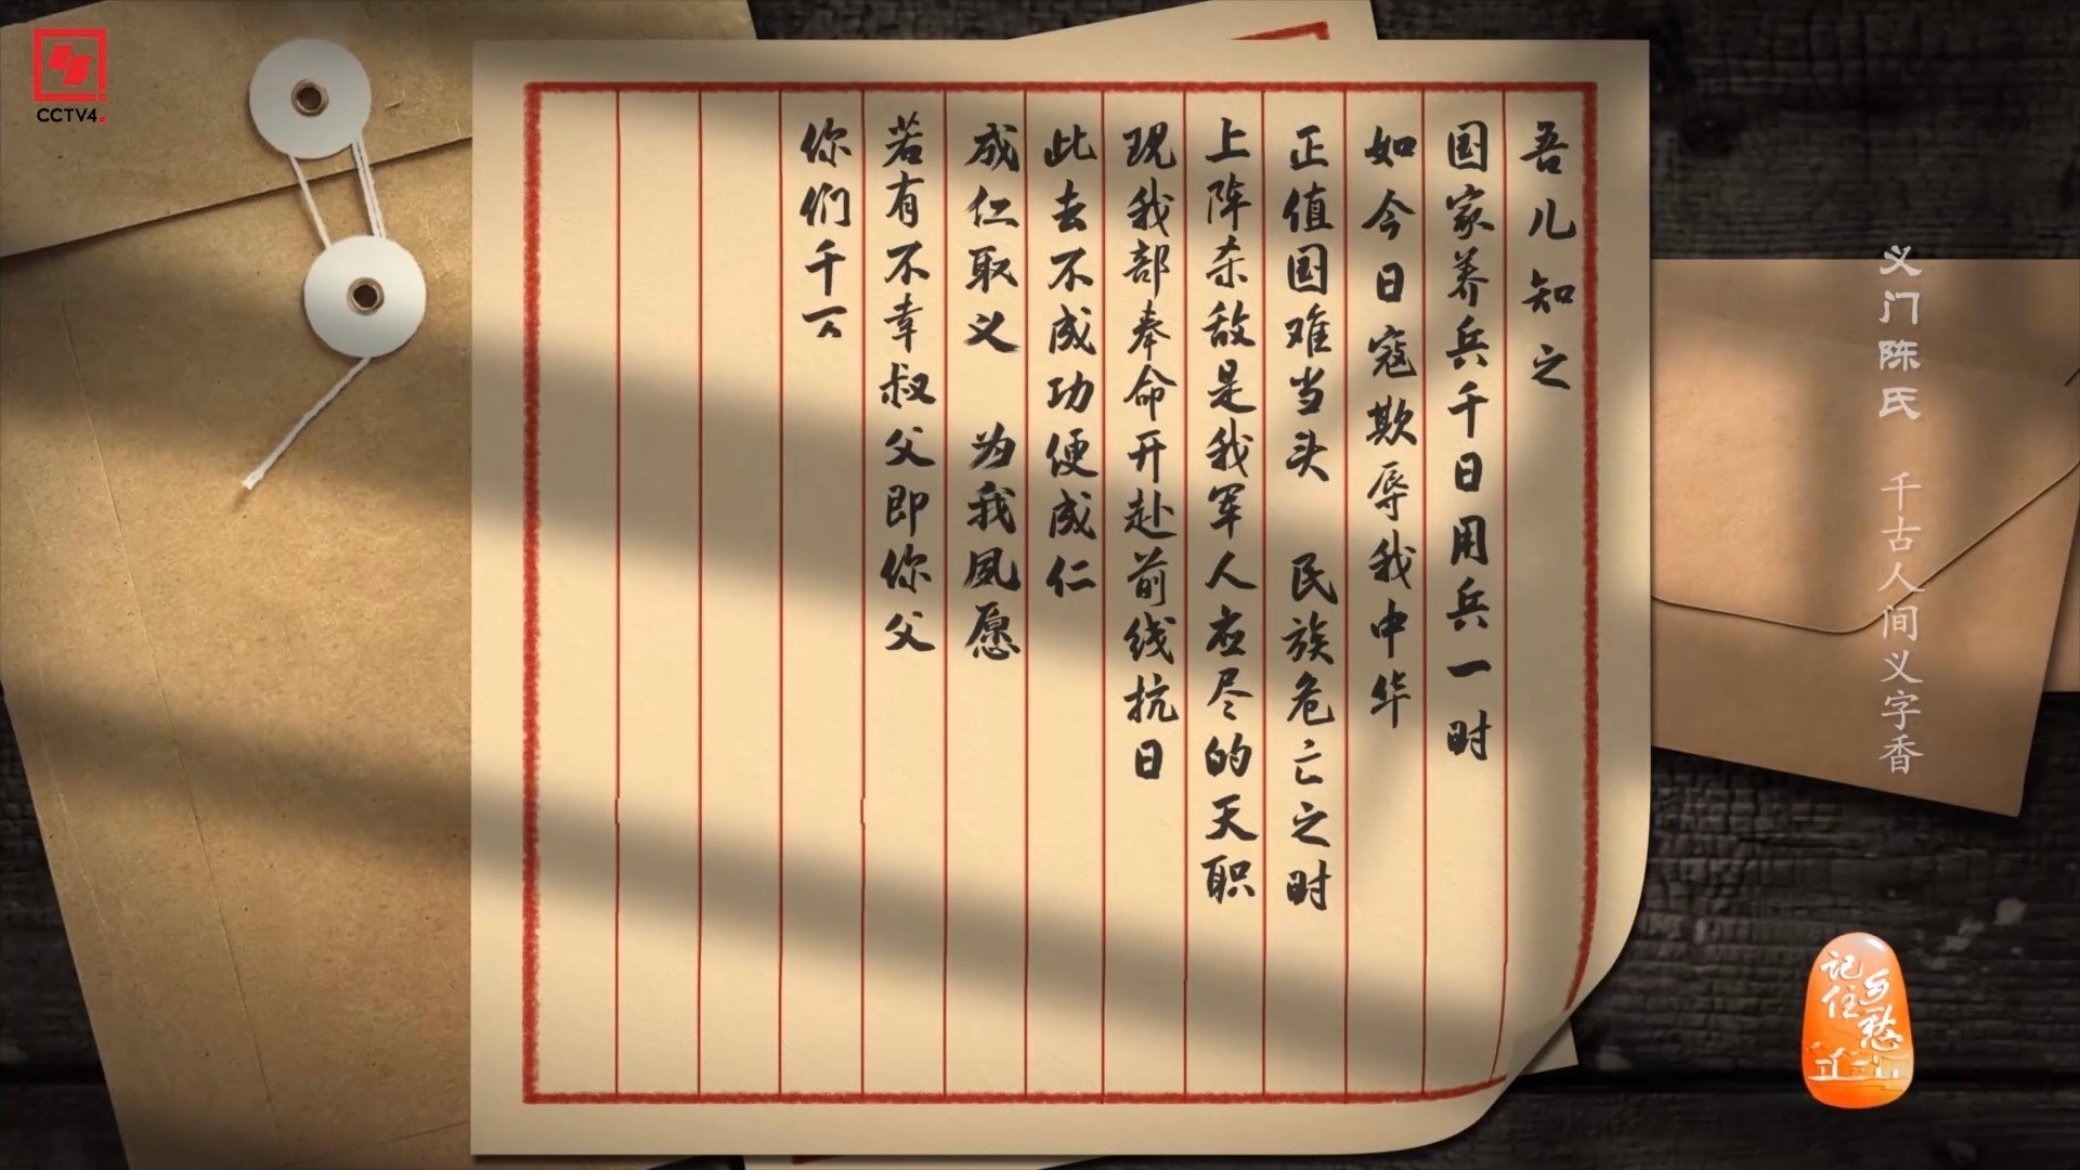 CCTV4.
吾儿知之
国家养兵千日用兵一时
如今日寇欺辱我中华
正值国难当头 民族危亡之时
上阵杀敌是我军人应尽的天职
现我部奉命开赴前线抗日
此去不成功便成仁
成仁取义 为我夙愿
若有不幸叔父即你父
你们千
义门陈氏 千古人间义字香
记住乡愁